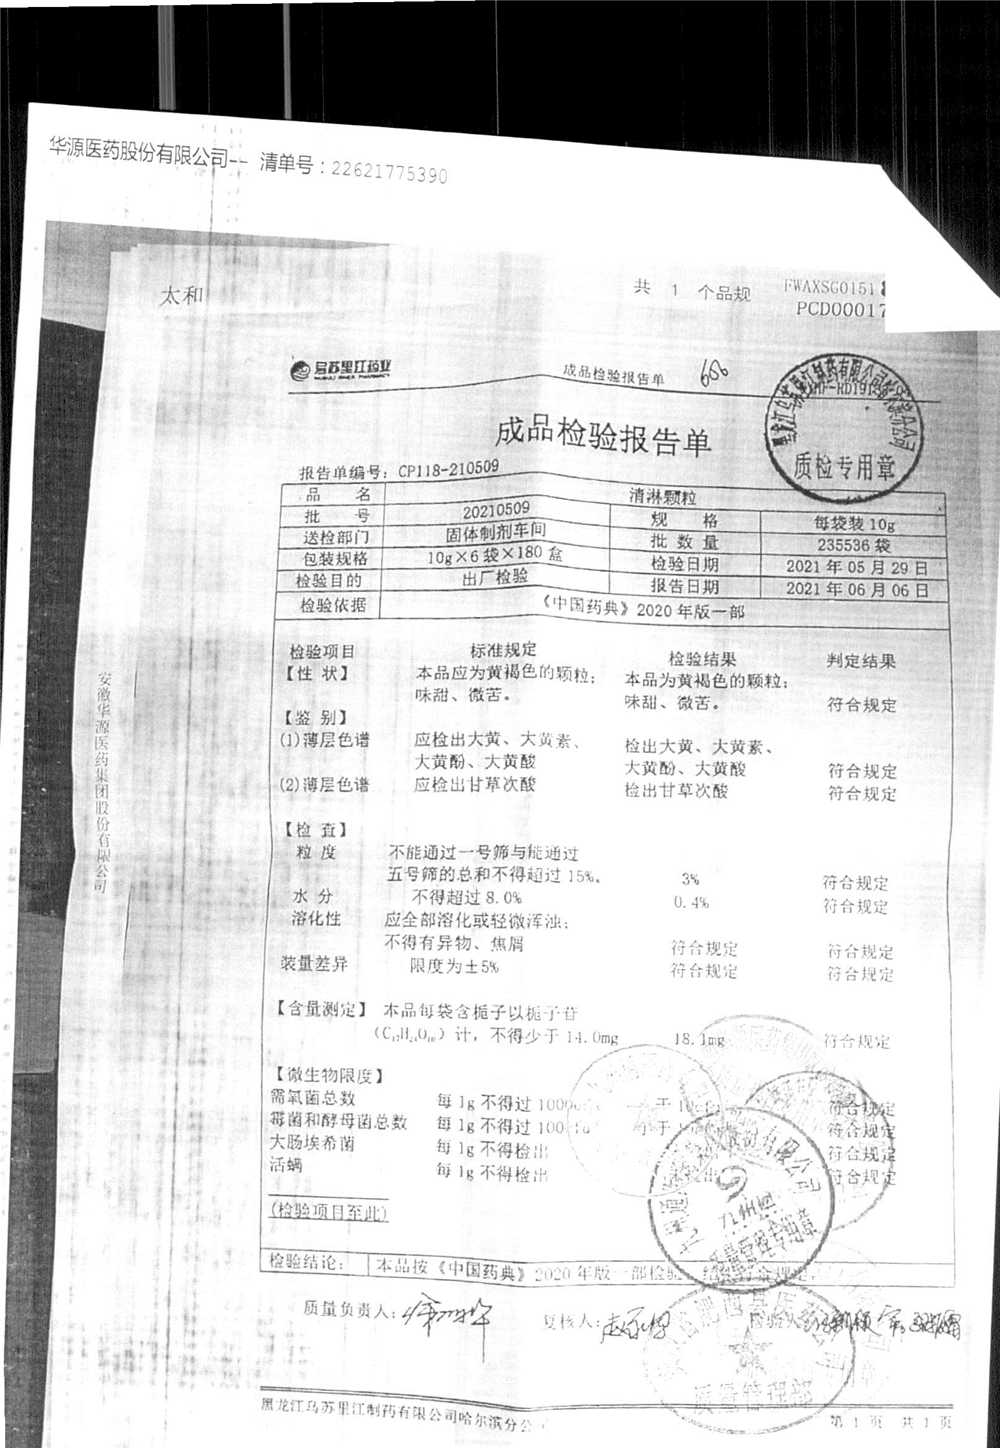 华源医药股份有限公司-- 清单号：22621775390
太和
共 1 个品规 FWAXSG0151
PCD00017
乌苏里江药业 成品检验报告单 606
成品检验报告单
报告单编号：CP118-210509
品 名 清淋颗粒
批 号 20210509 规 格 每袋装10g
送检部门 固体制剂车间 批数量 235536袋
包装规格 10g×6袋×180盒 检验日期 2021年05月29日
检验目的 出厂检验 报告日期 2021年06月06日
检验依据 《中国药典》2020年版一部
质检专用章
检验项目 标准规定 检验结果 判定结果
【性 状】 本品应为黄褐色的颗粒； 本品为黄褐色的颗粒；
味甜、微苦。 味甜、微苦。 符合规定
【鉴 别】
(1)薄层色谱 应检出大黄、大黄素、 检出大黄、大黄素、
大黄酚、大黄酸 大黄酚、大黄酸 符合规定
(2)薄层色谱 应检出甘草次酸 检出甘草次酸 符合规定
【检 查】
粒 度 不能通过一号筛与能通过
五号筛的总和不得超过15%。 3% 符合规定
水 分 不得超过8.0% 0.4% 符合规定
溶化性 应全部溶化或轻微浑浊；
不得有异物、焦屑 符合规定 符合规定
装量差异 限度为±5% 符合规定 符合规定
【含量测定】 本品每袋含栀子以栀子苷
（C₁₇H₂₄O₁₀）计，不得少于14.0mg 18.1mg 符合规定
【微生物限度】
需氧菌总数 每1g不得过1000 符合规定
霉菌和酵母菌总数 每1g不得过100 符合规定
大肠埃希菌 每1g不得检出 符合规定
活螨 每1g不得检出 符合规定
(检验项目至此)
检验结论： 本品按《中国药典》2020年版一部检验
质量负责人： 复核人： 检验人
质量管理部
黑龙江乌苏里江制药有限公司哈尔滨分公 第 1 页 共 1 页
安徽华源医药集团股份有限公司